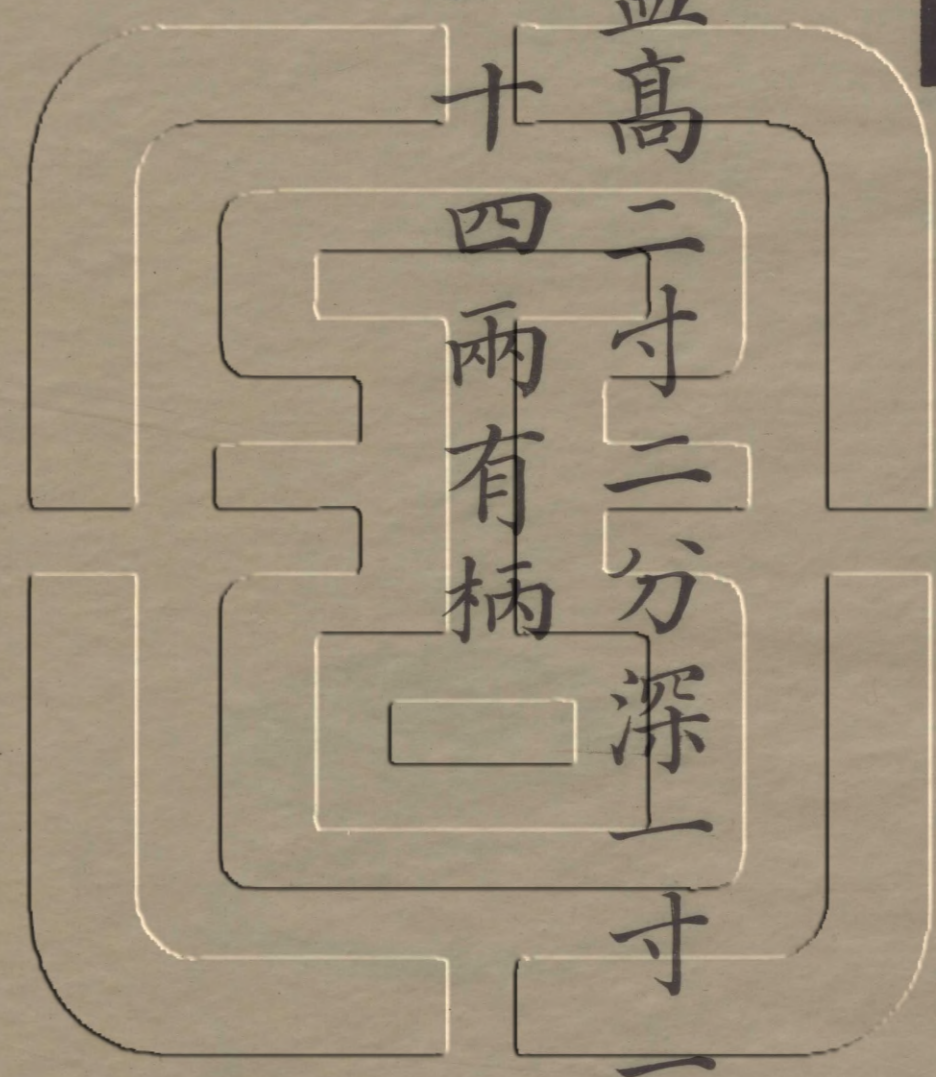 高二寸二分深一寸
十四兩有柄